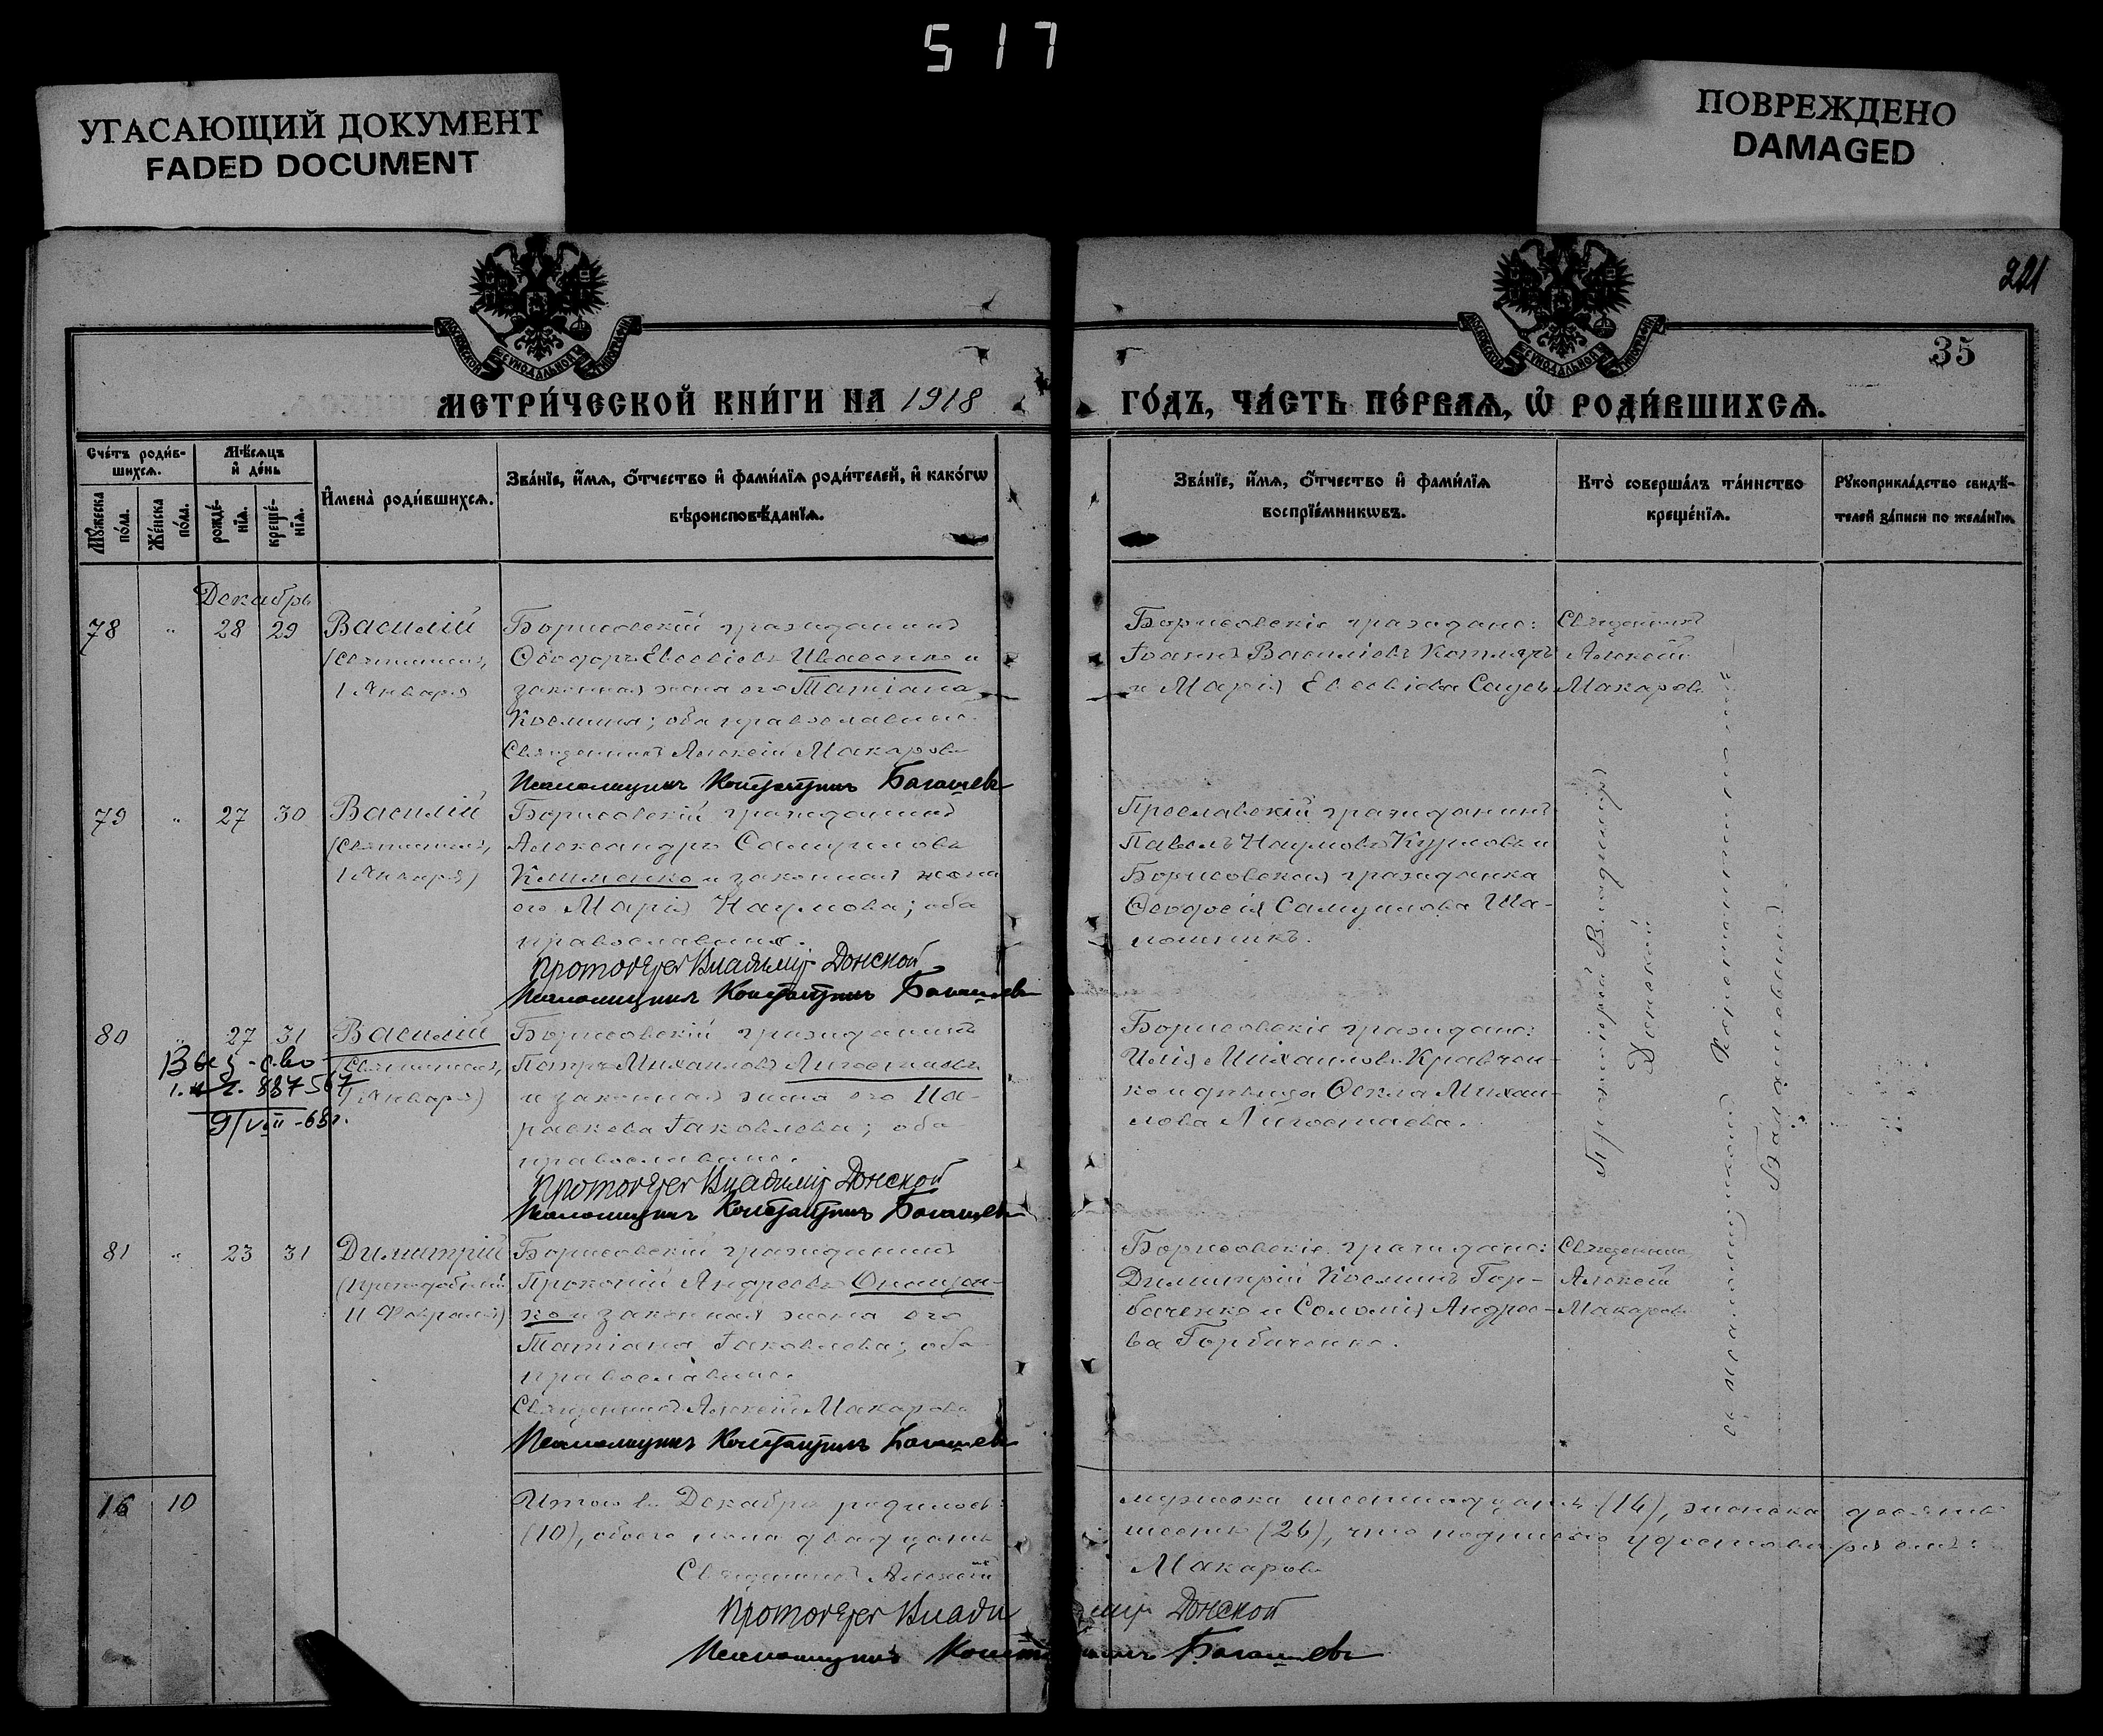 517
УГАСАЮЩИЙ ДОКУМЕНТ
FADED DOCUMENT
ПОВРЕЖДЕНО
DAMAGED
221
35
МЕТРИ́ЧЕСКОЙ КНИ́ГИ НА 1918
ГО́ДЪ, ЧА́СТЬ ПЕ́РВАЯ, Ѡ҆ РОДИ́ВШИХСЯ.
Сче́тъ роди́в-
шихся.
Мѣ́сяцъ
и҆ де́нь
Мꙋ́жеска по́ла.
Же́нска по́ла.
рожде́-
нїя.
креще́-
нїя.
И҆мена̀ роди́вшихся.
Зва́нїе, и҆́мя, ѻ҆́тчество и҆ фами́лїя роди́телей, и҆ како́гѡ
вѣроисповѣ́данїя.
Зва́нїе, и҆́мя, ѻ҆́тчество и҆ фами́лїя
воспрїе́мникѡвъ.
Кто̀ соверша́лъ та́инство
креще́нїя.
Рꙋкоприкла́дство свидѣ́-
телей за́писи по жела́нїю
Декабрь
78 " 28 29 Василій
(Святитель,
1 Января
Борисовскій гражданинъ
Ѳеодоръ Евсевіевъ Ивасенко и
законная жена его Татіана
Космина; оба православные.
Священникъ Алексій Макаровъ
Псаломщикъ Константинъ Балашевъ
Борисовскіе граждане:
Іоаннъ Василіевъ Котляръ
и Марія Евсевіева
Священникъ
Алексій
Макаровъ
79 " 27 30 Василій
(Святитель,
1 Января)
Борисовскій гражданинъ
Александръ Самуиловъ
Клименко и законная жена
его Марія Наумова; оба
православные.
Протоіерей Владиміръ Донской
Псаломщикъ Константинъ Балашевъ
гражданинъ
Павелъ Наумовъ Курловъ и
Борисовская гражданка
Ѳеодосія Самуилова Ша-
Протоіерей Владиміръ
Донской
80 " 27 31 Василій
(Святитель,
1 Января)
887567
9/VIII-68г.
Борисовскій гражданинъ
Петръ Михаиловъ
и законная жена его Па-
раскева Іаковлева; оба
православные.
Протоіерей Владиміръ Донской
Псаломщикъ Константинъ Балашевъ
Борисовскіе граждане:
Илія Михаиловъ Кравчен-
ко и дѣвица Ѳекла Михаи-
лова
съ псаломщикомъ Константиномъ
81 " 23 31 Димитрій
(преподобный
11 Февраля)
Борисовскій гражданинъ
Прокопій Андреевъ Онищен-
ко и законная жена его
Татіана Іаковлева; оба
православные.
Священникъ Алексій Макаровъ
Псаломщикъ Константинъ Балашевъ
Борисовскіе граждане:
Димитрій Косминъ Гор-
баченко и Соломія Андрее-
ва Горбаченко.
Священникъ
Алексій
Макаровъ
16 10
Итого въ Декабрѣ родилось: мужеска шестнадцать (16), женска десять
(10), обоего пола двадцать шесть (26), что подписью удостовѣряемъ:
Священникъ Алексій Макаровъ
Протоіерей Владиміръ Донской
Псаломщикъ Константинъ Балашевъ